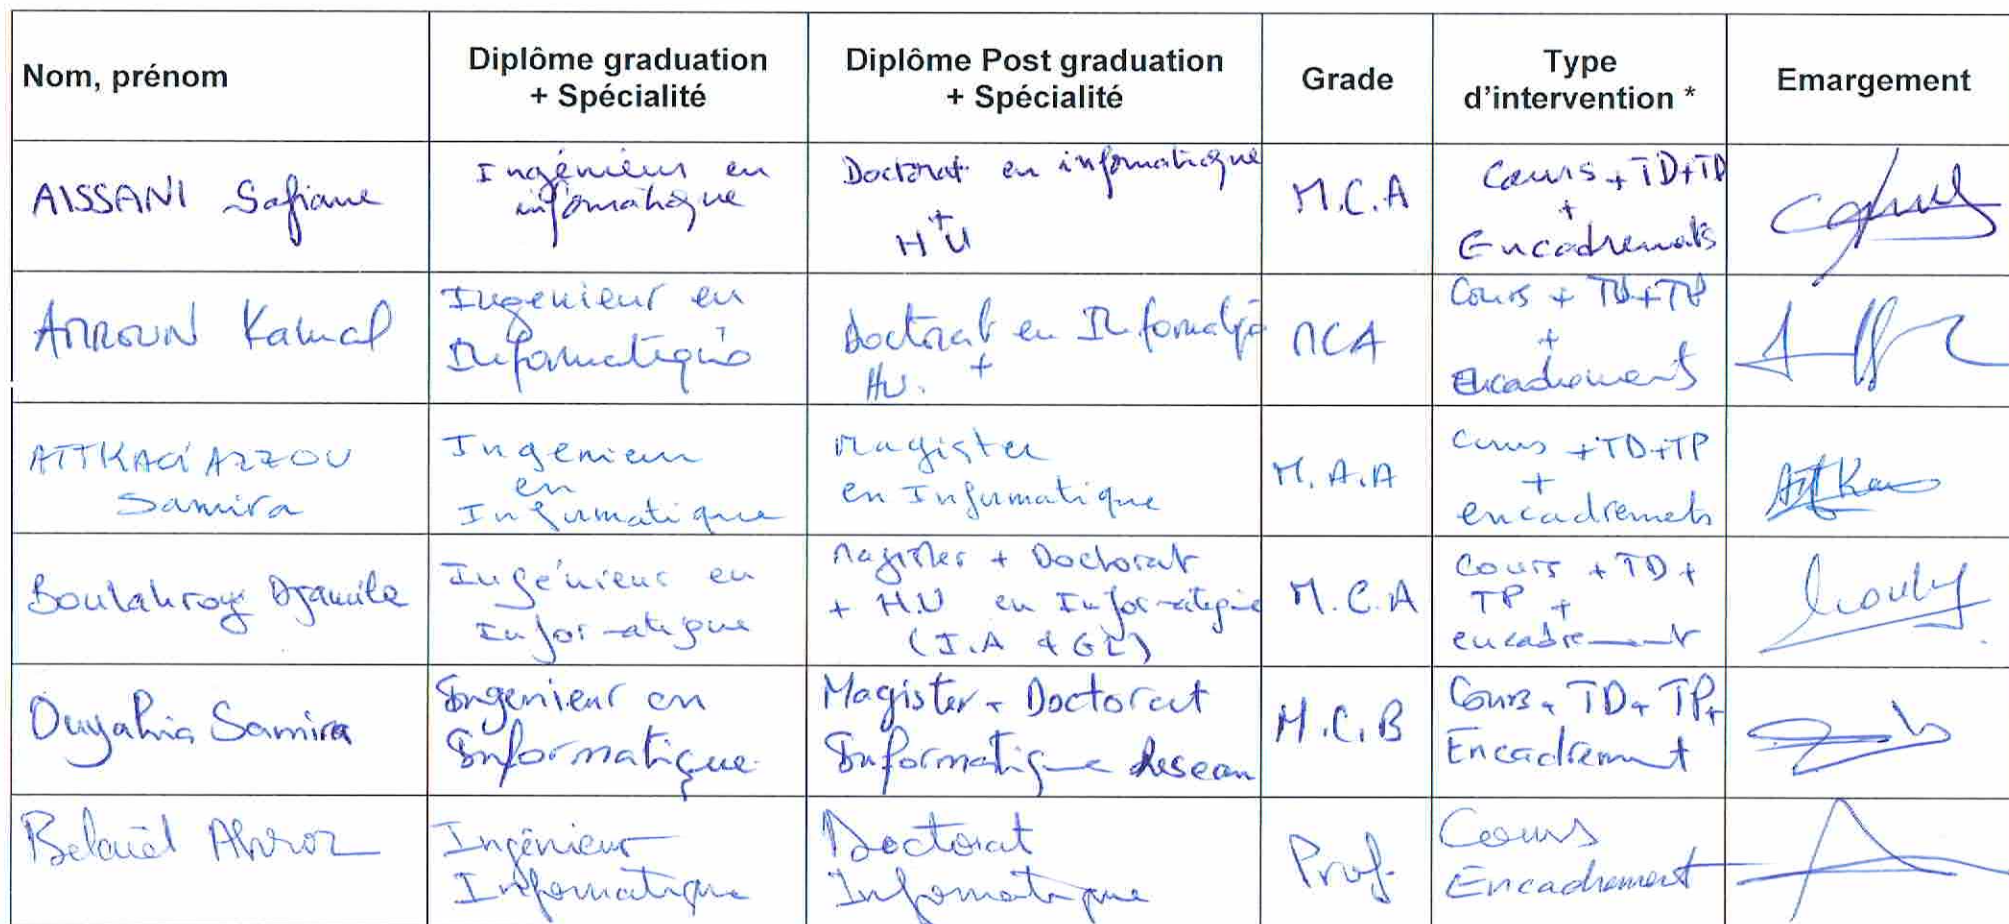 Nom, prénom
Diplôme graduation
+ Spécialité
Diplôme Post graduation
+ Spécialité
Grade
Type
d'intervention *
Emargement
AISSANI Sofiane
Ingénieur en
informatique
Doctorat en informatique
+
H U
M.C.A
Cours + TD+TP
+
Encadremets
AMROUN Kamal
Ingenieur en
Informatique
Doctorat en Informatiq
+
HU.
MCA
Cours + TD+TP
+
Encadrement
AITKACI AZZOU
Samira
Ingenieur
en
Informatique
Magister
en Informatique
M.A.A
Cours +TD+TP
+
encadremets
Boulahrouz Djamila
Ingénieur en
Informatique
Magister + Doctorat
+ H.U en Informatique
(I.A & GL)
M.C.A
Cours + TD +
TP +
encadrement
Ouyahia Samira
Ingenieur en
Informatique
Magister + Doctorat
Informatique Reseau
M.C.B
Cours + TD + TP+
Encadrement
Belaïd Ahror
Ingénieur
Informatique
Doctorat
Informatique
Prof.
Cours
Encadrement